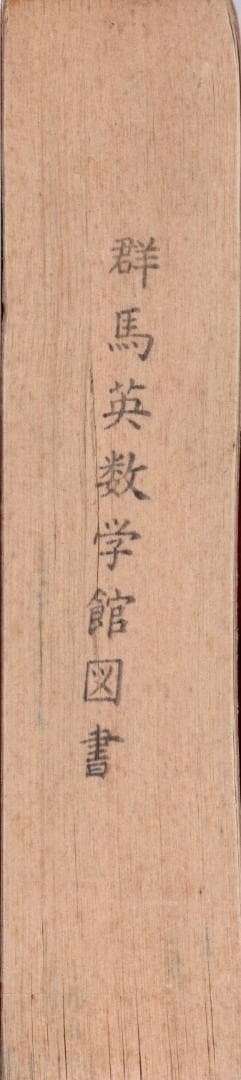 群馬英数学館図書